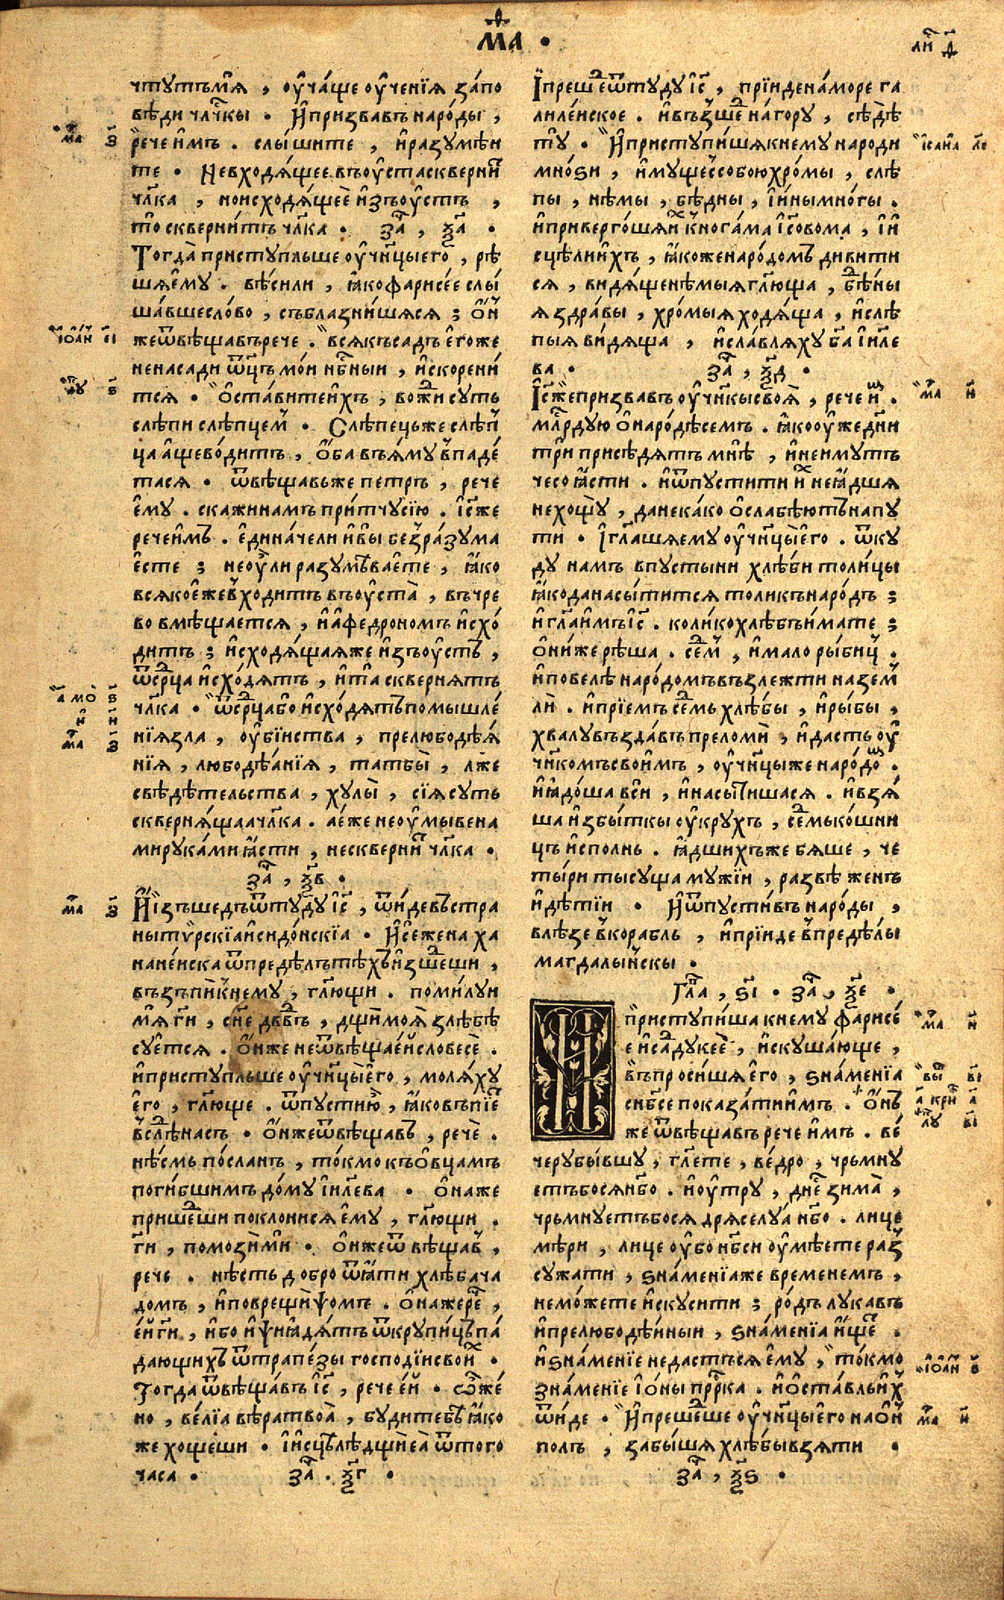 мⷴа •
лиⷭ д҃
чтутъмѧ , оу҆ча́ще оу҆че́нїꙗ за́по
вѣди чл҃чкы • И҆призвавъ наро́ды ,
рече и҆мъ . слы́шите , и҆разумѣи
те • Невходѧ́щее въоу҆ста сквернⷮи
чл҃ка , ноисходѧ́щеѐ и҆зъоу҆стъ ,
то сквернитъ чл҃ка • заⷱ , ѯ҃а •
Тогда̀ приступльше оу҆чн҃цыегоⷪ , рѣ
шѧе́му . вѣ́сили , ꙗ҆кофарисе́е слы́
ша́вшесло́во , съблазни́шѧсѧ ; ѻ҆нⷤ
жеѿвѣщавърече . всѧкъсадъ е҆гоже
ненасади ѿц҃ъ мо́и нбⷭ҇ныи , и҆скорени́
тсѧ • Ѡ҆ста́витеи҆хъ , вожⷣи суть
слѣпи слѣпцемⷨ • Слѣпець же слѣпⷰ
ца а҆щево́дитъ , ѻ҆́ба въꙗ́му впаде́
тасѧ • ѿвѣщавьже петръ , рече
е҆му . скажинамъ при́тчусїю . і҆с҃же
речеи҆мъ . е҆дина́чели и҆вы безра́зума
е҆сте ; неоу҆ли разумѣвае́те , ꙗ҆ко
всѧкое҆жевⷯходитъ въоу҆ста̀ , въчре
во вмѣщается , и҆а҆федрономъ и҆схо́
дитъ ; и҆сходѧщаꙗже и҆зъоу҆стъ ,
ѿсрⷣца и҆схо́дѧтъ , и҆та̀ сквернѧтъ
чл҃ка • ѿсрⷣцабо и҆схо́дѧтъпомышле́
нїꙗзла , оу҆бїнства , прелюбодѣѧ́
нїꙗ , любодѣа́нїꙗ , татбы̀ , лже
свѣдѣтельства , хулы̀ , сїѧсуть
сквернѧщаачл҃ка . ае́же неоу҆мывена
мирука́ми ꙗ҆сти , нескверниⷮ чл҃ка •
заⷱ , ѯ҃в •
И҆и҆зъшедъѿтуду і҆с҃ , ѿидевъстра
нытѵ́рскїаи҆сидо́нскїа • И҆сежена ха
нане́нска ѿпредѣлътѣхъи҆зшⷣеши ,
възъпикⷩ҇ему , гл҃ющи . поми́луи
мѧ гⷭ҇и , сн҃е дв҃въ , дщи моѧ̀ злѣбѣ
суе҆тсѧ . ѻ҆нже неѿвѣщае҆исловесѐ .
и҆приступльше оу҆чн҃цыего , молѧ́ху
е҆го̀ , гл҃юще . ѿпустию , ꙗ҆ковъпїеⷮ
вслѣнасъ • ѻ҆нжеѿвѣщавъ , рече̂ .
нѣ́смь по́сланъ , то́кмо къѻ҆вцамъ
поги́бшимъ до́му і҆ил҃ева • Ѻ҆наже
пришеⷣши поклонисѧ е҆му , гл҃ющи .
гⷭ҇и , помози́ми • Ѻ҆нжеѿ вѣщавⷡ ,
рече . нѣсть добро ѿꙗ҆ти хлѣба ча
домъ , и҆поврещи̂ псомъ . Ѻ҆нажереⷱ ,
е҆и гⷭ҇и , и҆бо и҆пси ꙗ҆дѧтъ ѿкрупи́цъ па́
дающихъ ѿтрапе́зы господїисвоиⷯ •
Тогда ѿвѣща́въ і҆с҃ , рече е҆и • ѽже́
но , ве́лїа вѣратвоа̀ , будитебѣ ꙗ҆ко
же хощеши • И҆и҆сцѣлѣдщи еѧ̀ ѿтого
часа • заⷱ . ѯ҃г •
І҆прешеⷣѿтуду і҆с҃ , прїиденамо́ре га
лиле́иское . и҆въ́зшеⷣ нагору , сѣдѣ̀
ту • И҆приступи́шѧкнему народи
мно́ѕи , и҆мущессобоюхро́мы , слѣ
пы , нѣмы , бѣдны , і҆и́нымно́гы .
и҆приверго́шѧиⷯ кнога́ма і҆с҃овома , і҆и
сцѣлии҆хъ , ꙗ҆коженаро́домъ дивити
сѧ , видѧ́щенѣмыѧ гл҃юща , бѣⷣны
ѧ здра́вы , хро́мыѧ ходѧ́ща , и҆слѣ
пыѧ ви́дѧща , и҆сла́влѧхубⷢ҇а і҆иле
ва • заⷱ , ѯ҃д •
І҆с҃жепризвавъ оу҆чн҃кысвоѧ̀ , рече и҆мⷨ .
млⷭ҇рдую ѻ҆наро́дѣсемъ . ꙗ҆кооу҆же дн҃и
три присѣдѧтъ мнѣ̀ , и҆неимутъ
чесо ꙗ҆сти . и҆ѿпустити иⷯ неꙗ҆дшѧ
нехощу , данека́ко ѻ҆слабѣютънапу
ти • І҆глⷢашѧему оу҆чн҃цыего . ѿку
ду намъ впустыни хлѣби толи́цы
ꙗ҆коданасы́титсѧ толикънародъ ;
и҆гл҃аимъі҆с҃ . коли́кохлѣбъи́мате ;
ѻ҆ни́же рѣша . сеⷣмь , и҆мало ры́биць .
и҆повелѣ наро́домъвъзлежти назем
лѝ . и҆прїемъ сеⷣмь хлѣбы , и҆рыбы ,
хвалу въ́здавъ преломѝ , и҆дастъ оу҆
чн҃комъсвоимъ , оу҆чн҃цыже наро́доⷨ .
и҆ꙗ҆до́ша вси , и҆насы́тишасѧ . и҆взѧ
ша и҆збы́ткы оу҆крухъ , сеⷣмько́шни
цъ и҆сполнь . ꙗ҆дшихъже бѧше , че
ты́ри ты́суща мужїи , ра́звѣ женъ
и҆дѣ́тїи • И҆ѿпустивъ наро́ды ,
влѣзе вкорабль , и҆прїиде впредѣлы
магдалы́нскы .
Глⷡа , ѕ҃і • заⷱ , ѯ҃е •
И҆приступи́ша кнему фарисе́
е и҆садукеѐ , и҆скуша́юще ,
въпроси́шѧ е҆го , ѕна́менїа
снб҃се показа́тиимъ . Ѻ҆нъ
же ѿвѣща́въ рече и҆мъ . ве́
черубы́вшу , гл҃ете , ве́дро , чрьмну
етъбосѧнб҃о . и҆оутру , дн҃е зима̀ ,
чрьмнуетъбосѧ дрѧселуа нб҃о . лице
мѣ́ри , лице оу҆бо нбⷭ҇и оу҆мѣ́ете раⷥ
сужати , ѕна́менїаже временемъ ,
немо́жете и҆скусити ; ро́дъ лукавъ
и҆прелюбодѣ́иныи , ѕна́менїа и҆щеⷮ .
и҆ѕна́менїе недастъсѧ е҆му , то́кмо
зна́менїе і҆о́ны прⷪ҇рка . и҆ѡ҆ста́вльиⷯ
ѿиде • И҆прешеⷣше оу҆чн҃цыего наѻ҆нⷩ
полъ , забы́шѧ хлѣбывзѧти •
заⷱ , ѯ҃ѕ •